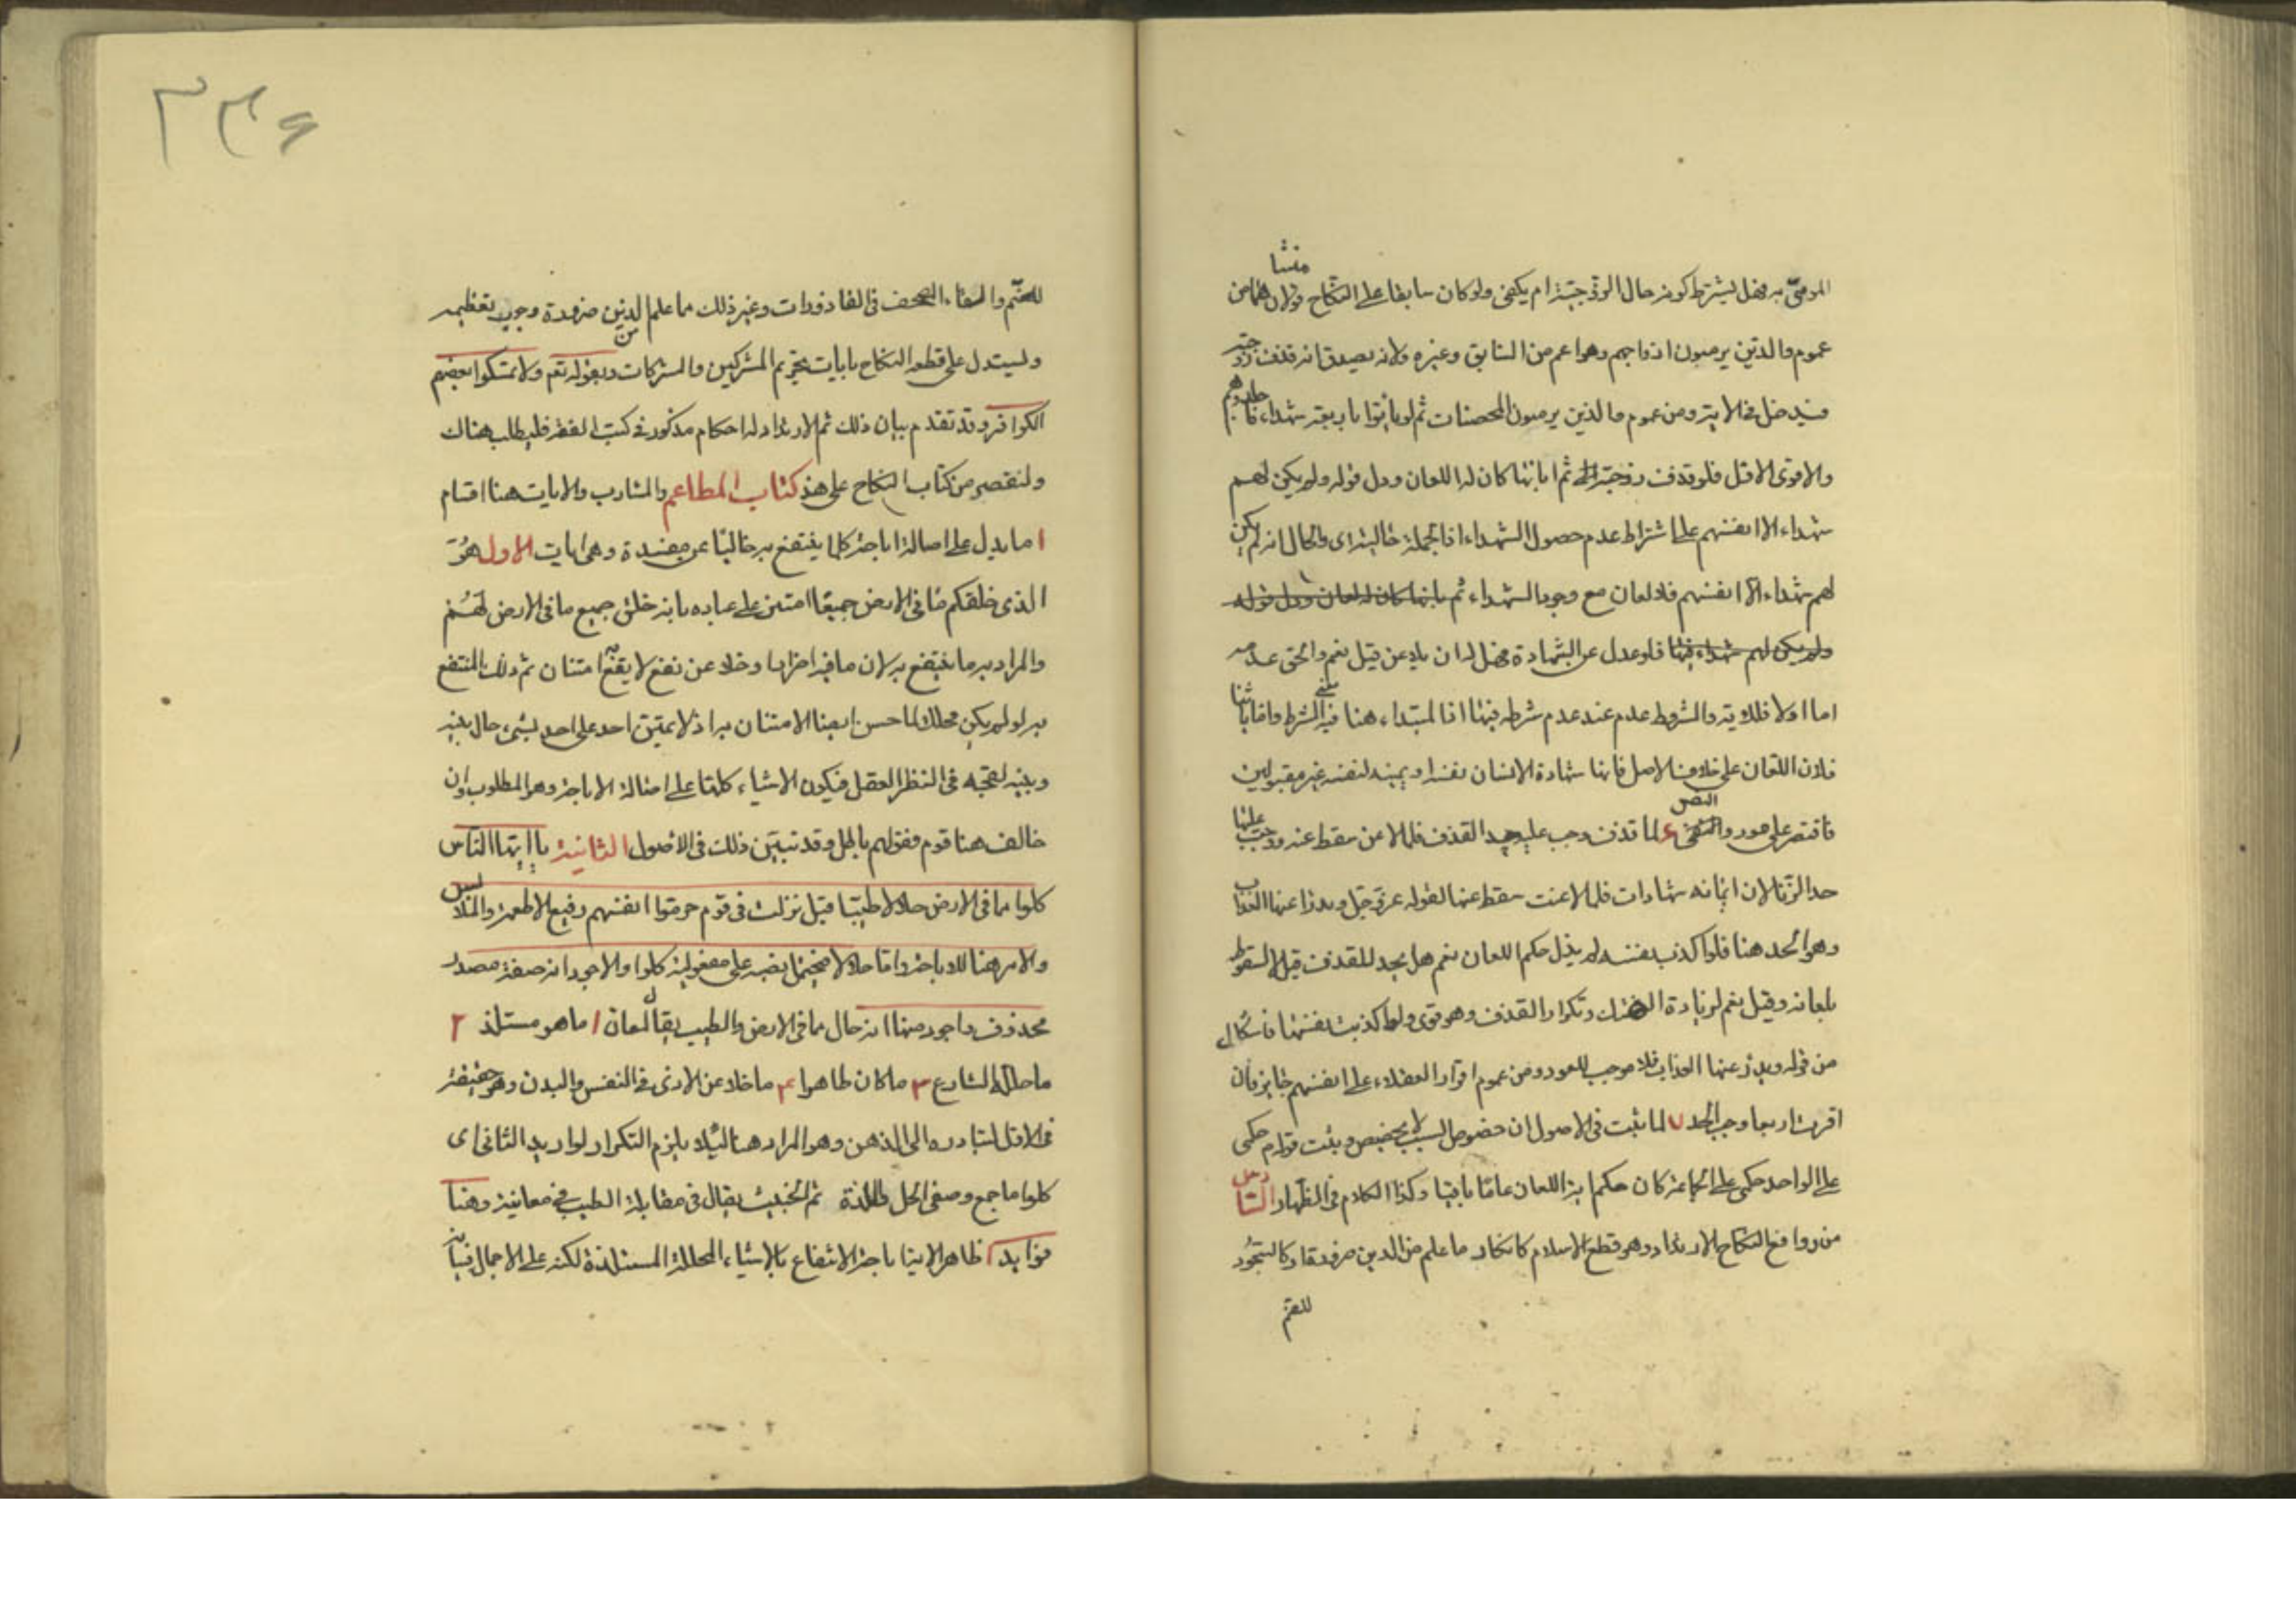 المرمىّ به فهل يشترط كونه حال الزوجيّة ام يكفى ولو كان سابقا على النكاح قولان هما من
منشا
عموم والذين يرمون ازواجهم وهو اعم من السابق وغيره ولانه يصدق انه قذف زوجته
فيدخل فى الاية ومن عموم والذين يرمون المحصنات ثم لم ياتوا باربعة شهداء فاجلدوهم
والاقوى الاول فلو قذف زوجته ثم ابانها كان له اللعان ودل قوله ولم يكن لهم
شهداء الا انفسهم على اشتراط عدم حصول الشهداء اذ الجملة حالية اى والحال انه لم يكن
لهم شهداء الا انفسهم فلا لعان مع وجود الشهداء ثم بانها كان له لعان ودل قوله
ولم يكن لهم شهداء فلو عدل عن الشهادة فهل له ان يلاعن قيل نعم والحق عدمه
اما اولا فللاية والمشروط عدم عند عدم شرطه هنا فيه الشرط واما ثانيا
فلان اللعان على خلاف الاصل فانها شهادة الانسان لنفسه او يمينه لنفسه غير مقبولين
النص
فاقتصر على مورد لما قذف وجب عليه حد القذف فلما لاعن سقط عنه ووجب عليها
حد الزنا لان ايمانه شهادات فلما لاعنت سقط عنها لقوله عز وجل ويدرا عنها العذاب
وهو الحد هنا فلو اكذب نفسه لم يزل حكم اللعان نعم هل يحد للقذف قيل لا لسقوطه
بلعانه وقيل نعم لزيادة الهتك وتكرار القذف وهو قوى ولو اكذبت نفسها فاشكال
من قوله ويدرؤ عنها العذاب فلا موجب للعود ومن عموم اقرار العقلاء على انفسهم جايز فان
اقرت اربعا وجب الحد ٧ لما ثبت فى الاصول ان خصوص السبب لا يخصص وثبت قوله م حكمى
على الواحد حكمى على الجماعة كان حكم اية اللعان عاما باقيا وكذا الكلام فى الظهار السادس
من روافع النكاح الارتداد وهو قطع الاسلام كانكار ما علم من الدين ضرورة او كالسجود
للصنم
٢٣۶
للصنم والقاء المصحف فى القاذورات وغير ذلك مما علم من الدين ضرورة وجوب تعظيمه
ويستدل على قطعه النكاح بايات تحريم المشركين والمشركات وبقوله تعم ولا تمسكوا بعصم
الكوافر وقد تقدم بيان ذلك ثم الارتداد له احكام مذكور فى كتب الفقه فليطلب هناك
ولنقتصر من كتاب النكاح على هذ كتاب المطاعم والمشارب والايات هنا اقسام
ا ما يدل على اصالة اباحة كلما ينتفع به خاليا عن مفسدة وهى ايات الاولى هُوَ
الذى خلق لكم مَا فى الارض جميعًا امتن على عباده بانه خلق جميع ما فى الارض لهم
والمراد به ما ينتفع به لان ما فيه اضرار او خلا عن نفع لا يقع به امتنان ثم ذلك المنتفع
به لو لم يكن محللا لما حسن ايضا الامتنان به اذ لا يمتن احد على احد بشىء حال بينه
وبينه فى النظر العقل فيكون الاشياء كلها على اصالة الاباحة وهو المطلوب وان
خالف هنا قوم فقولهم باطل وقد تبين ذلك فى الاصول الثانية يا ايها الناس
كلوا مما فى الارض حلالا طيبا قيل نزلت فى قوم حرموا انفسهم رفيع الاطعمة والملابس
والامر هنا للاباحة واما حلالا فيحتمل نصبه على مفعولية كلوا والاجود انه صفة مصدر
محذوف واجود منها انه حال مما فى الارض والطيب يقال لمعان ا ما هو مستلذ ٢
ما حلله الشارع ٣ ما كان طاهرا ۴ ما خلا عن الاذى فى النفس والبدن وهو حقيقة
فى الاول لتبادره الى الذهن وهو المراد هنا لئلا يلزم التكرار لو اريد الثانى اى
كلوا ما جمع وصفى الحل واللذة ثم الخبيث يقال فى مقابلة الطيب فى معانيه وهنا
فوايد ا ظاهر الاية اباحة الانتفاع بالاشياء المحللة المستلذة لكنه على الاجمال